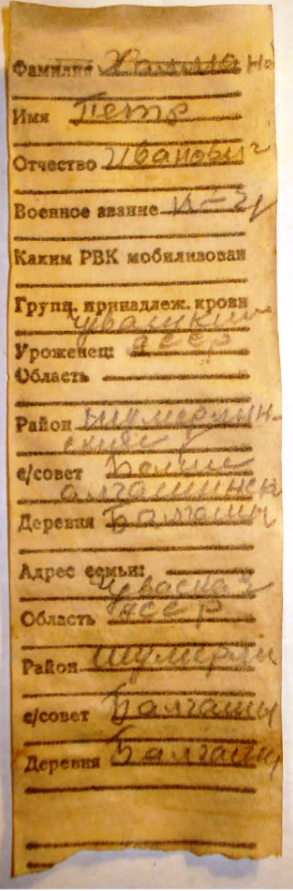 Фамилия
Имя Петр
Отчество Иванович
Военное звание к-ц
Каким РВК мобилизован
Групп. принадлеж. крови
Чувашская
Уроженец: АССР
Область
Район Шумерлин-
ский
с/совет Больше
алгашинск
Деревня Балгаши
Адрес семьи:
Чувашская
Область АССР
Район Шумерлин
с/совет Балгаши
Деревня Балгаши